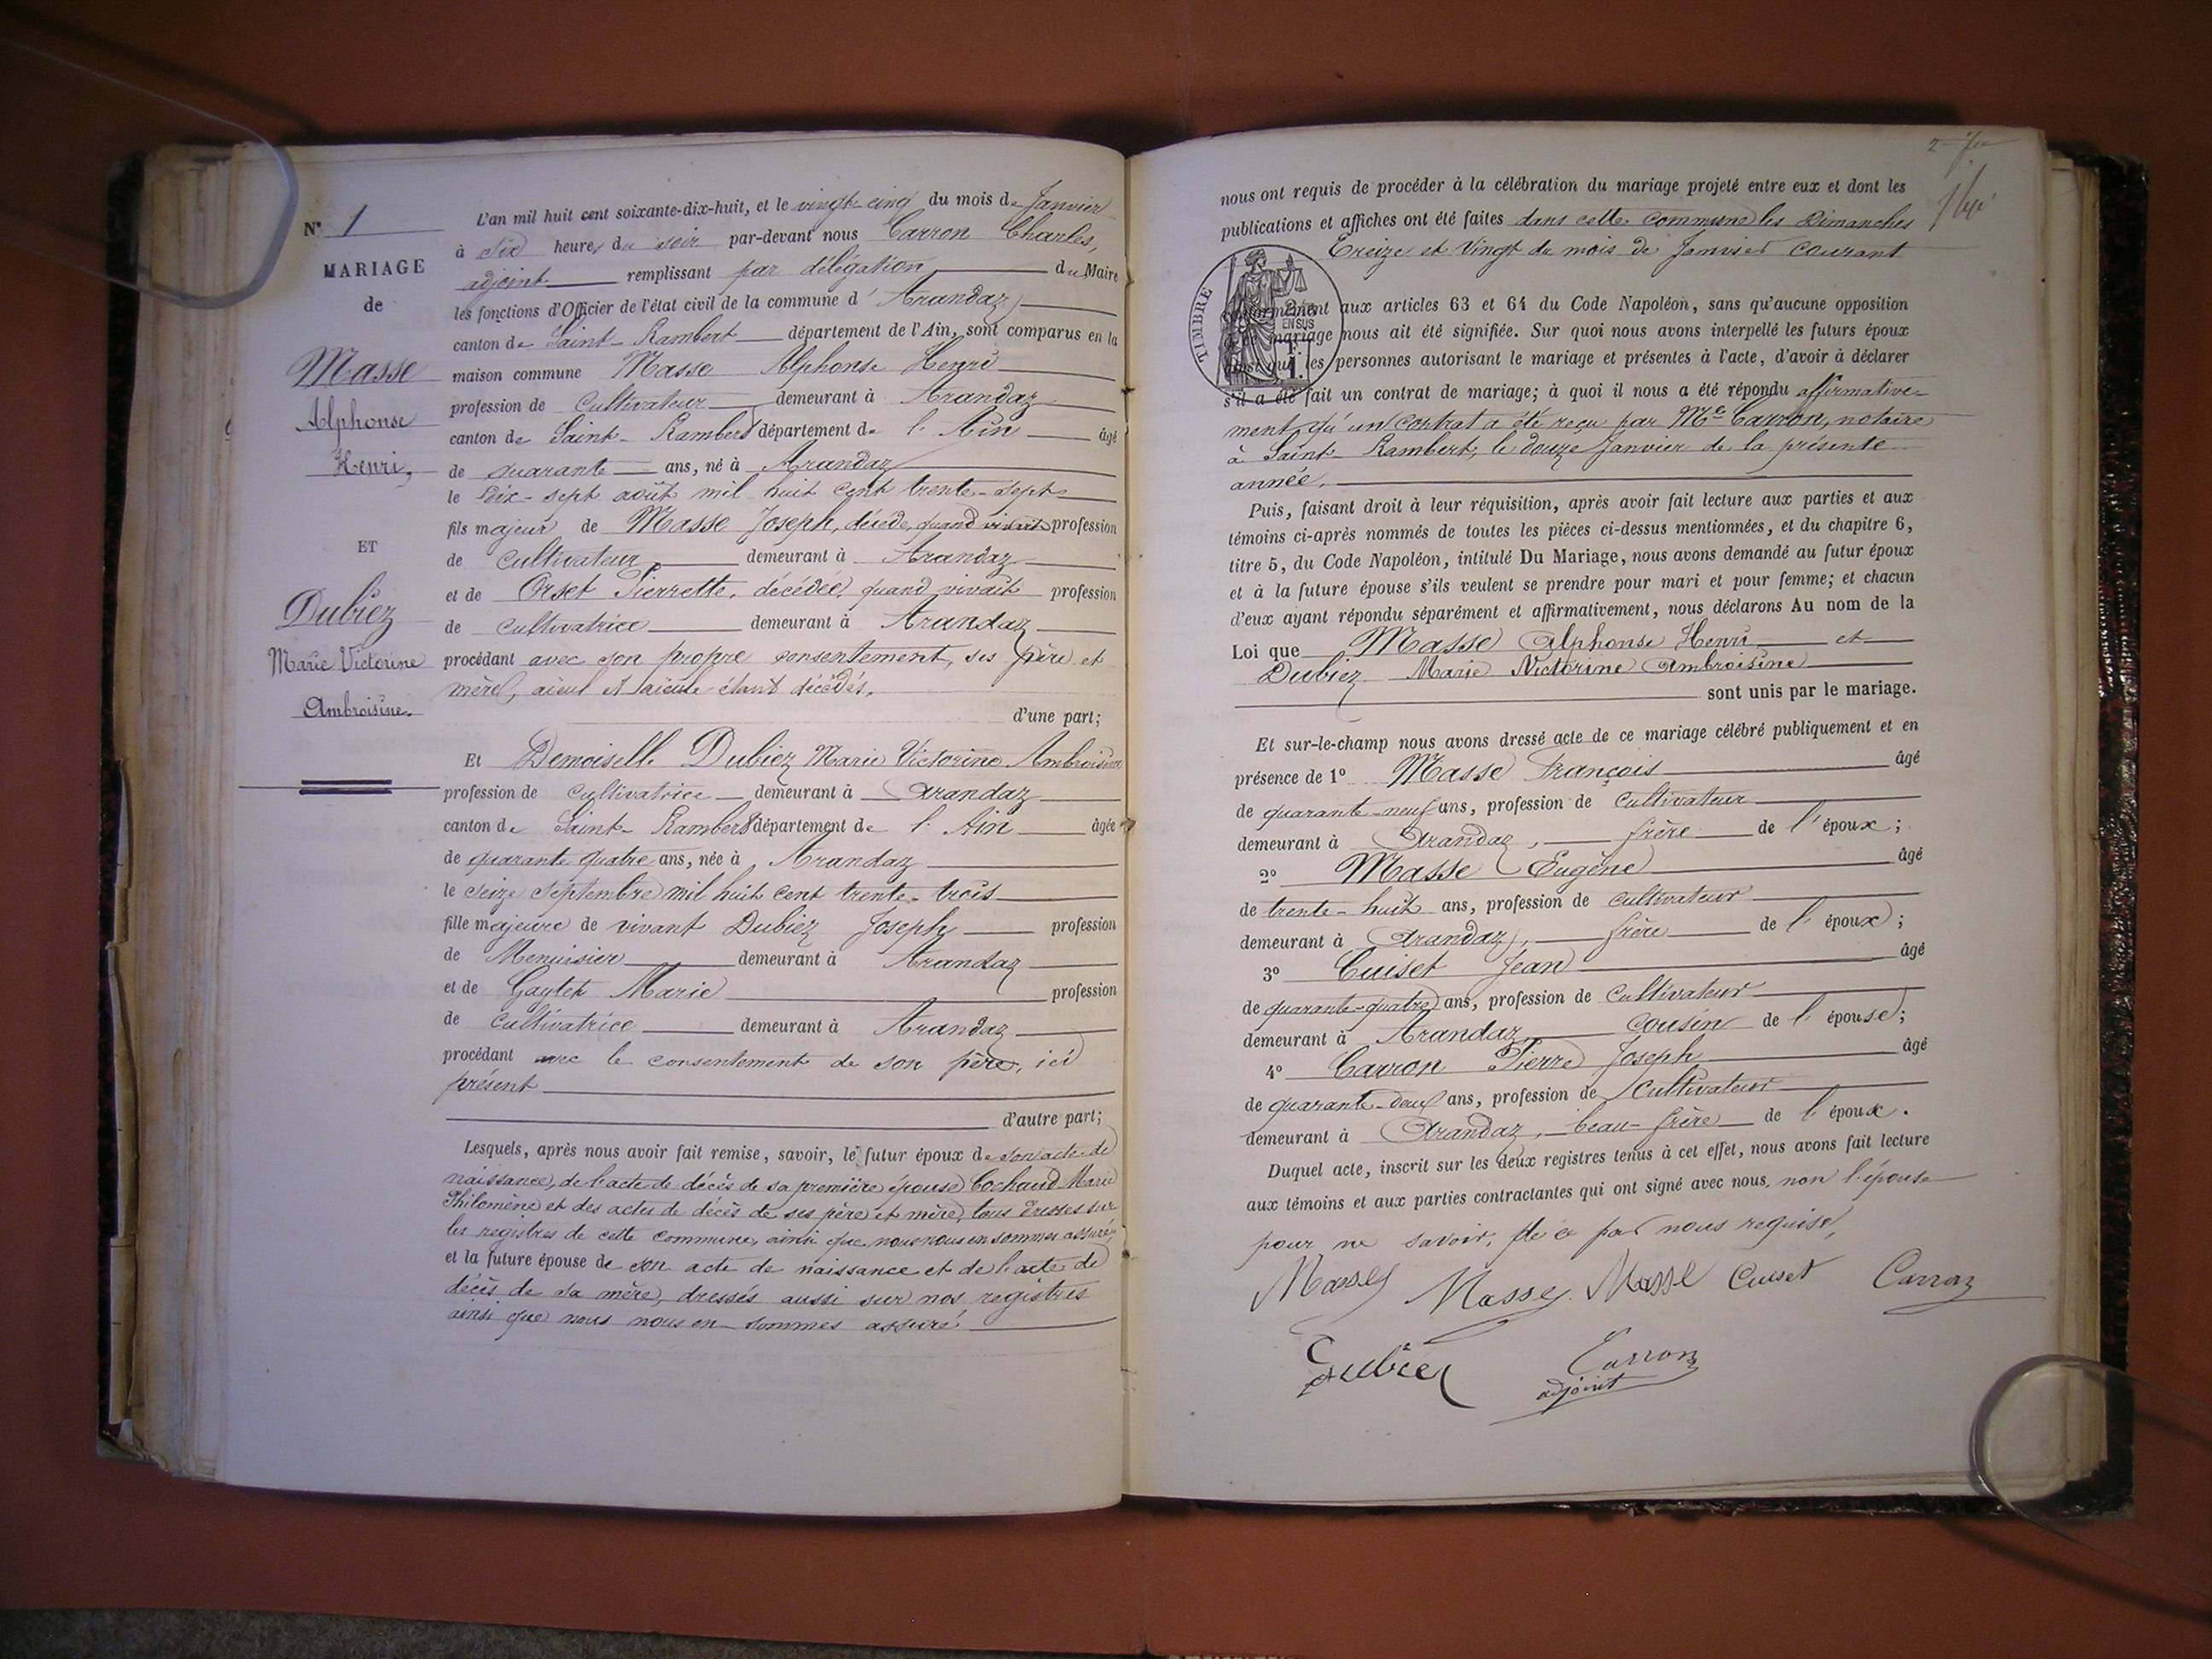 N° 1
MARIAGE
de
Masse
Alphonse
Henri,
ET
Dubiez
Marie Victorine
Ambroisine.
L'an mil huit cent soixante-dix-huit, et le vingt-cinq du mois de Janvier
à six heures du soir par-devant nous Carron Charles,
adjoint remplissant par délégation du Maire
les fonctions d'Officier de l'état civil de la commune d' Arandaz
canton de Saint-Rambert département de l'Ain, sont comparus en la
maison commune Masse Alphonse Henri
profession de Cultivateur demeurant à Arandaz
canton de Saint-Rambert département de l'Ain âgé
de quarante ans, né à Arandaz
le dix-sept août mil huit cent trente-sept
fils majeur de Masse Joseph, décédé, quand vivait profession
de cultivateur demeurant à Arandaz
et de Orset Pierrette, décédée, quand vivait profession
de cultivatrice demeurant à Arandaz
procédant avec son propre consentement, ses père et
mère, aïeul et aïeule étant décédés.
d'une part;
Et Demoiselle Dubiez Marie Victorine Ambroisine
profession de cultivatrice demeurant à Arandaz
canton de Saint-Rambert département de l'Ain âgée
de quarante quatre ans, née à Arandaz
le seize Septembre mil huit cent trente-trois
fille majeure de vivant Dubiez Joseph profession
de Menuisier demeurant à Arandaz
et de Gaylet Marie profession
de cultivatrice demeurant à Arandaz
procédant avec le consentement de son père, ici
présent
d'autre part;
Lesquels, après nous avoir fait remise, savoir, le futur époux de son acte de
naissance, de l'acte de décès de sa première épouse Cochaud Marie
Philomène et des actes de décès de ses père et mère, tous dressés sur
les registres de cette commune, ainsi que nous nous en sommes assuré,
et la future épouse de son acte de naissance et de l'acte de
décès de sa mère, dressés aussi sur nos registres
ainsi que nous nous en sommes assuré
nous ont requis de procéder à la célébration du mariage projeté entre eux et dont les
publications et affiches ont été faites dans cette commune les Dimanches
Treize et Vingt du mois de Janvier courant
TIMBRE
2/10 EN SUS
conformément aux articles 63 et 64 du Code Napoléon, sans qu'aucune opposition
à ce mariage nous ait été signifiée. Sur quoi nous avons interpellé les futurs époux
ainsi que les personnes autorisant le mariage et présentes à l'acte, d'avoir à déclarer
s'il a été fait un contrat de mariage; à quoi il nous a été répondu affirmative-
ment qu'un contrat a été reçu par Me Carron, notaire
à Saint-Rambert, le douze Janvier de la présente
année.
Puis, faisant droit à leur réquisition, après avoir fait lecture aux parties et aux
témoins ci-après nommés de toutes les pièces ci-dessus mentionnées, et du chapitre 6,
titre 5, du Code Napoléon, intitulé Du Mariage, nous avons demandé au futur époux
et à la future épouse s'ils veulent se prendre pour mari et pour femme; et chacun
d'eux ayant répondu séparément et affirmativement, nous déclarons Au nom de la
Loi que Masse Alphonse Henri et
Dubiez Marie Victorine Ambroisine
sont unis par le mariage.
Et sur-le-champ nous avons dressé acte de ce mariage célébré publiquement et en
présence de 1° Masse François âgé
de quarante-neuf ans, profession de cultivateur
demeurant à Arandaz, frère de l'époux;
2° Masse Eugène âgé
de trente-huit ans, profession de cultivateur
demeurant à Arandaz, frère de l'époux;
3° Cuiset Jean âgé
de quarante-quatre ans, profession de Cultivateur
demeurant à Arandaz cousin de l'épouse;
4° Carron Pierre Joseph âgé
de quarante-deux ans, profession de Cultivateur
demeurant à Arandaz, beau-frère de l'époux.
Duquel acte, inscrit sur les deux registres tenus à cet effet, nous avons fait lecture
aux témoins et aux parties contractantes qui ont signé avec nous, non l'épouse
pour ne savoir, de ce par nous requise,
Masse Masse Masse Cuiset Carron
Dubiez Carron
adjoint